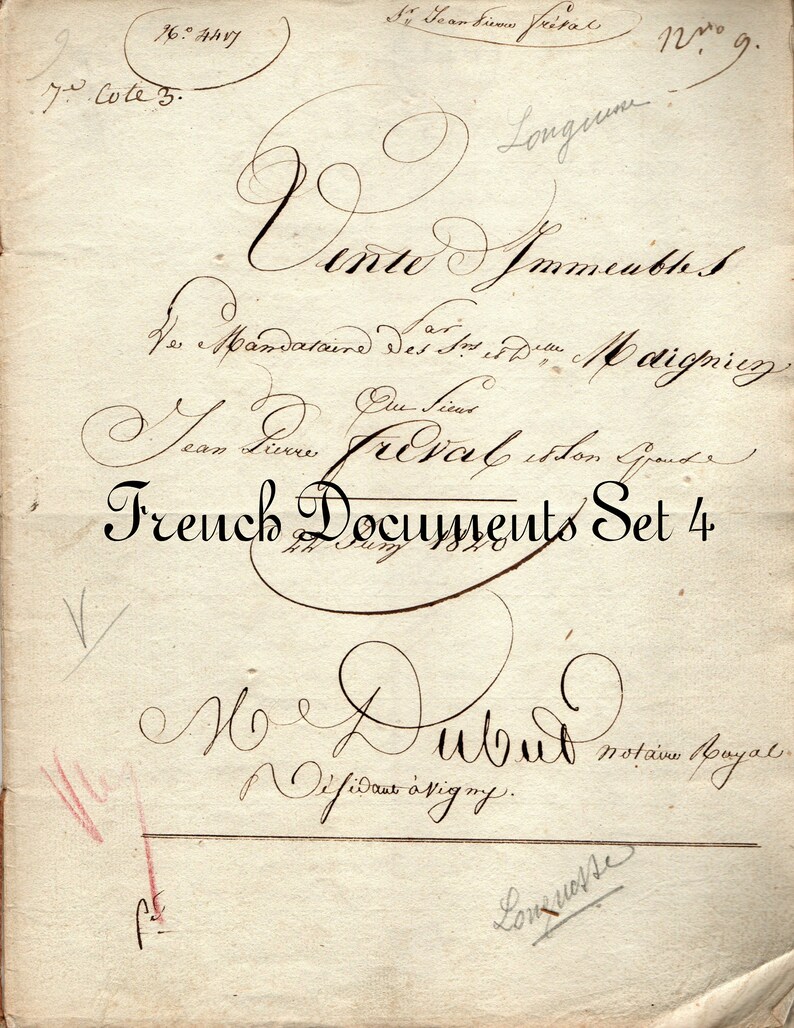 Sr Jean Pierre Fréval
No 4417
Nro 9.
7e Cote 3.
Vente D'Immeubles
Par
Le Mandataire des Srs et Dlle Maignien
Au Sieur
Jean Pierre Fréval et son Epouse
French Documents Set 4
22 Juin 1828
Me Dubud notaire Royal
Résidant à Vigny.
Longuesse